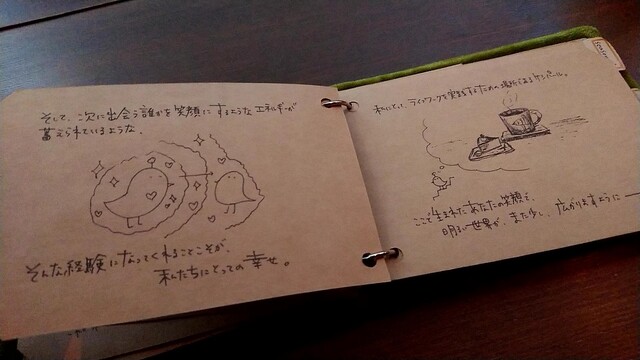 そして、次に出会う誰かを笑顔にするようなエネルギーが
蓄えられているような、
そんな経験になってくれることこそが、
私たちにとっての幸せ。
私にとって、ライフワークを実践するための場所であるサンパール。
ここで生まれたあなたの笑顔で、
明るい世界が、また少し、広がりますように